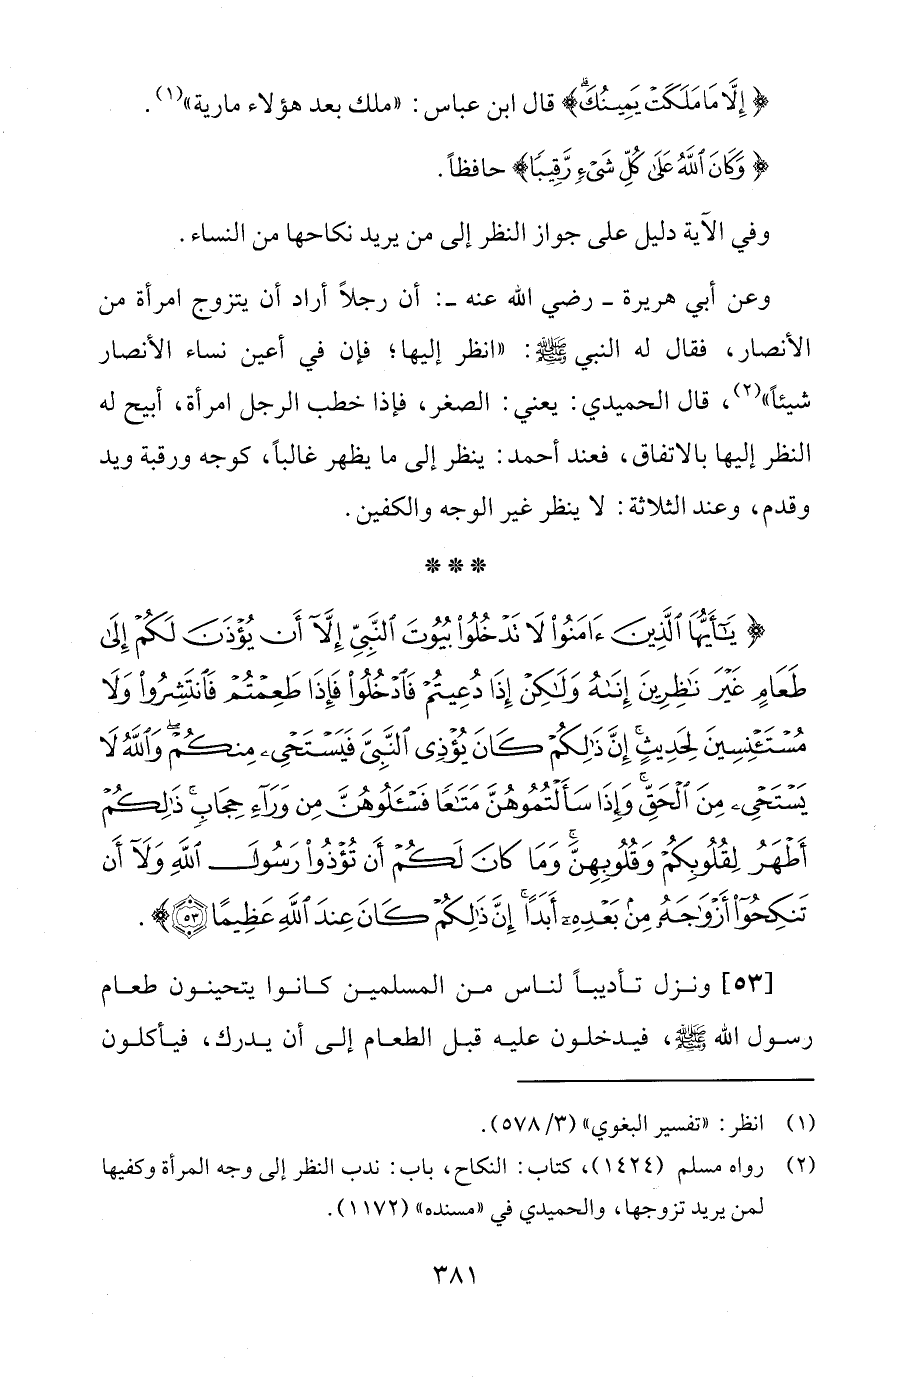 ﴿ إِلَّا مَا مَلَكَتْ يَمِينُكَ ۗ﴾ قال ابن عباس: «ملك بعد هؤلاء مارية»(١).
﴿ وَكَانَ ٱللَّهُ عَلَىٰ كُلِّ شَىْءٍ رَّقِيبًا﴾ حافظاً.
وفي الآية دليل على جواز النظر إلى من يريد نكاحها من النساء.
وعن أبي هريرة ـ رضي الله عنه ـ: أن رجلاً أراد أن يتزوج امرأة من
الأنصار، فقال له النبي ﷺ: «انظر إليها؛ فإن في أعين نساء الأنصار
شيئاً»(٢)، قال الحميدي: يعني: الصغر، فإذا خطب الرجل امرأة، أبيح له
النظر إليها بالاتفاق، فعند أحمد: ينظر إلى ما يظهر غالباً، كوجه ورقبة ويد
وقدم، وعند الثلاثة: لا ينظر غير الوجه والكفين.
* * *
﴿ يَٰٓأَيُّهَا ٱلَّذِينَ ءَامَنُوا۟ لَا تَدْخُلُوا۟ بُيُوتَ ٱلنَّبِىِّ إِلَّآ أَن يُؤْذَنَ لَكُمْ إِلَىٰ
طَعَامٍ غَيْرَ نَٰظِرِينَ إِنَىٰهُ وَلَٰكِنْ إِذَا دُعِيتُمْ فَٱدْخُلُوا۟ فَإِذَا طَعِمْتُمْ فَٱنتَشِرُوا۟ وَلَا
مُسْتَـْٔنِسِينَ لِحَدِيثٍ ۚ إِنَّ ذَٰلِكُمْ كَانَ يُؤْذِى ٱلنَّبِىَّ فَيَسْتَحْىِۦ مِنكُمْ ۖ وَٱللَّهُ لَا
يَسْتَحْىِۦ مِنَ ٱلْحَقِّ ۚ وَإِذَا سَأَلْتُمُوهُنَّ مَتَٰعًا فَسْـَٔلُوهُنَّ مِن وَرَآءِ حِجَابٍ ۚ ذَٰلِكُمْ
أَطْهَرُ لِقُلُوبِكُمْ وَقُلُوبِهِنَّ ۚ وَمَا كَانَ لَكُمْ أَن تُؤْذُوا۟ رَسُولَ ٱللَّهِ وَلَآ أَن
تَنكِحُوٓا۟ أَزْوَٰجَهُۥ مِنۢ بَعْدِهِۦٓ أَبَدًا ۚ إِنَّ ذَٰلِكُمْ كَانَ عِندَ ٱللَّهِ عَظِيمًا ﴿٥٣﴾﴾.
[٥٣] ونزل تأديباً لناس من المسلمين كانوا يتحينون طعام
رسول الله ﷺ، فيدخلون عليه قبل الطعام إلى أن يدرك، فيأكلون
(١) انظر: «تفسير البغوي» (٣/ ٥٧٨).
(٢) رواه مسلم (١٤٢٤)، كتاب: النكاح، باب: ندب النظر إلى وجه المرأة وكفيها
لمن يريد تزوجها، والحميدي في «مسنده» (١١٧٢).
٣٨١